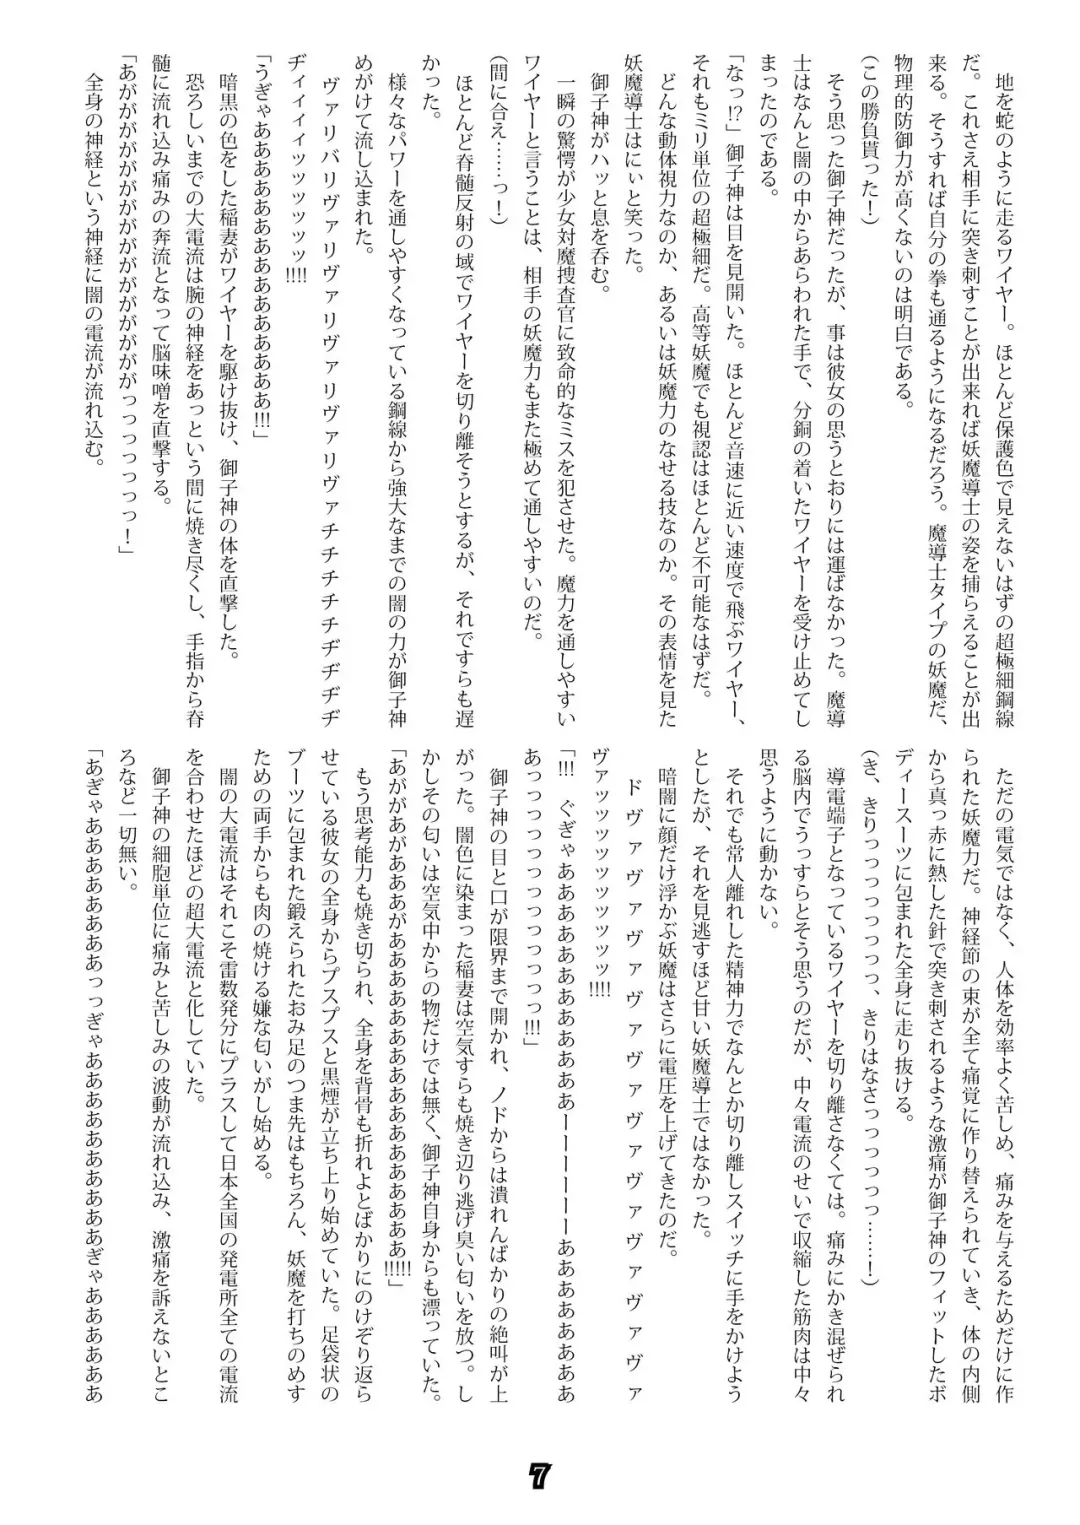 地を蛇のように走るワイヤー。ほとんど保護色で見えないはずの超極細鋼線
だ。これさえ相手に突き刺すことが出来れば妖魔導士の姿を捕らえることが出
来る。そうすれば自分の拳も通るようになるだろう。魔導士タイプの妖魔だ、
物理的防御力が高くないのは明白である。
（この勝負貰った！）
　そう思った御子神だったが、事は彼女の思うとおりには運ばなかった。魔導
士はなんと闇の中からあらわれた手で、分銅の着いたワイヤーを受け止めてし
まったのである。
「なっ!?」御子神は目を見開いた。ほとんど音速に近い速度で飛ぶワイヤー、
それもミリ単位の超極細だ。高等妖魔でも視認はほとんど不可能なはずだ。
　どんな動体視力なのか、あるいは妖魔力のなせる技なのか。その表情を見た
妖魔導士はにぃと笑った。
　御子神がハッと息を呑む。
　一瞬の驚愕が少女対魔捜査官に致命的なミスを犯させた。魔力を通しやすい
ワイヤーと言うことは、相手の妖魔力もまた極めて通しやすいのだ。
（間に合え……っ！）
　ほとんど脊髄反射の域でワイヤーを切り離そうとするが、それですらも遅
かった。
　様々なパワーを通しやすくなっている鋼線から強大なまでの闇の力が御子神
めがけて流し込まれた。
　ヴァリバリヴァリヴァリヴァリヴァリヴァチチチチヂヂヂヂ
ヂィィィィッッッッッッ!!!!
「うぎゃああああああああああああああああ!!!」
　暗黒の色をした稲妻がワイヤーを駆け抜け、御子神の体を直撃した。
　恐ろしいまでの大電流は腕の神経をあっという間に焼き尽くし、手指から脊
髄に流れ込み痛みの奔流となって脳味噌を直撃する。
「あがががががががががががががががががっっっっっっっ！」
　全身の神経という神経に闇の電流が流れ込む。
　ただの電気ではなく、人体を効率よく苦しめ、痛みを与えるためだけに作
られた妖魔力だ。神経節の束が全て痛覚に作り替えられていき、体の内側
から真っ赤に熱した針で突き刺されるような激痛が御子神のフィットしたボ
ディースーツに包まれた全身に走り抜ける。
（き、きりっっっっっっっ、きりはなさっっっっっっ……！）
　導電端子となっているワイヤーを切り離さなくては。痛みにかき混ぜられ
る脳内でうっすらとそう思うのだが、中々電流のせいで収縮した筋肉は中々
思うように動かない。
　それでも常人離れした精神力でなんとか切り離しスイッチに手をかけよう
としたが、それを見逃すほど甘い妖魔導士ではなかった。
　暗闇に顔だけ浮かぶ妖魔はさらに電圧を上げてきたのだ。
　ドヴァヴァヴァヴァヴァヴァヴァヴァヴァヴァ
ヴァッッッッッッッッッッ!!!!
「!!!　ぐぎゃあああああああああああああーーーーーーあああああああ
あっっっっっっっっっっっっっ!!!」
　御子神の目と口が限界まで開かれ、ノドからは潰れんばかりの絶叫が上
がった。闇色に染まった稲妻は空気すらも焼き辺り逃げ臭い匂いを放つ。し
かしその匂いは空気中からの物だけでは無く、御子神自身からも漂っていた。
「あががあがあああがああああああああああああああああああああ!!!!!」
　もう思考能力も焼き切られ、全身を背骨も折れよとばかりにのけぞり返ら
せている彼女の全身からプスプスと黒煙が立ち上り始めていた。足袋状の
ブーツに包まれた鍛えられたおみ足のつま先はもちろん、妖魔を打ちのめす
ための両手からも肉の焼ける嫌な匂いがし始める。
　闇の大電流はそれこそ雷数発分にプラスして日本全国の発電所全ての電流
を合わせたほどの超大電流と化していた。
　御子神の細胞単位に痛みと苦しみの波動が流れ込み、激痛を訴えないとこ
ろなど一切無い。
「あぎゃああああああああっっぎゃああああああああああああぎゃああああああ
7